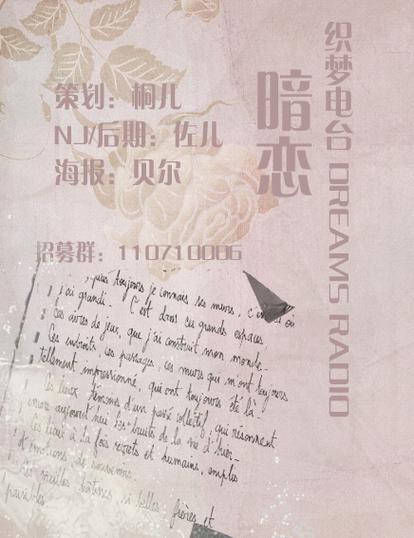 织梦电台 DREAMS RADIO
暗恋
策划：桐儿
NJ/后期：佐儿
海报：贝尔
招募群：110710006
toujours je connais ses murs, c'
j'ai grandi. C'est dans ces grands espaces
ces aires de jeux, que j'ai construit mon monde.
Ces endroits, ces passages, ces murs qui m'ont toujours
tellement impressionné, qui ont toujours été là
les lieux témoins d'un passé collectif, qui résonnent
encore aujourd'hui des bruits de la vie d'hier
les lieux à la fois secrets et humains, emplis
d'émotions, de souvenirs.
vieilles bâtisses si belles, fières et
paisibles